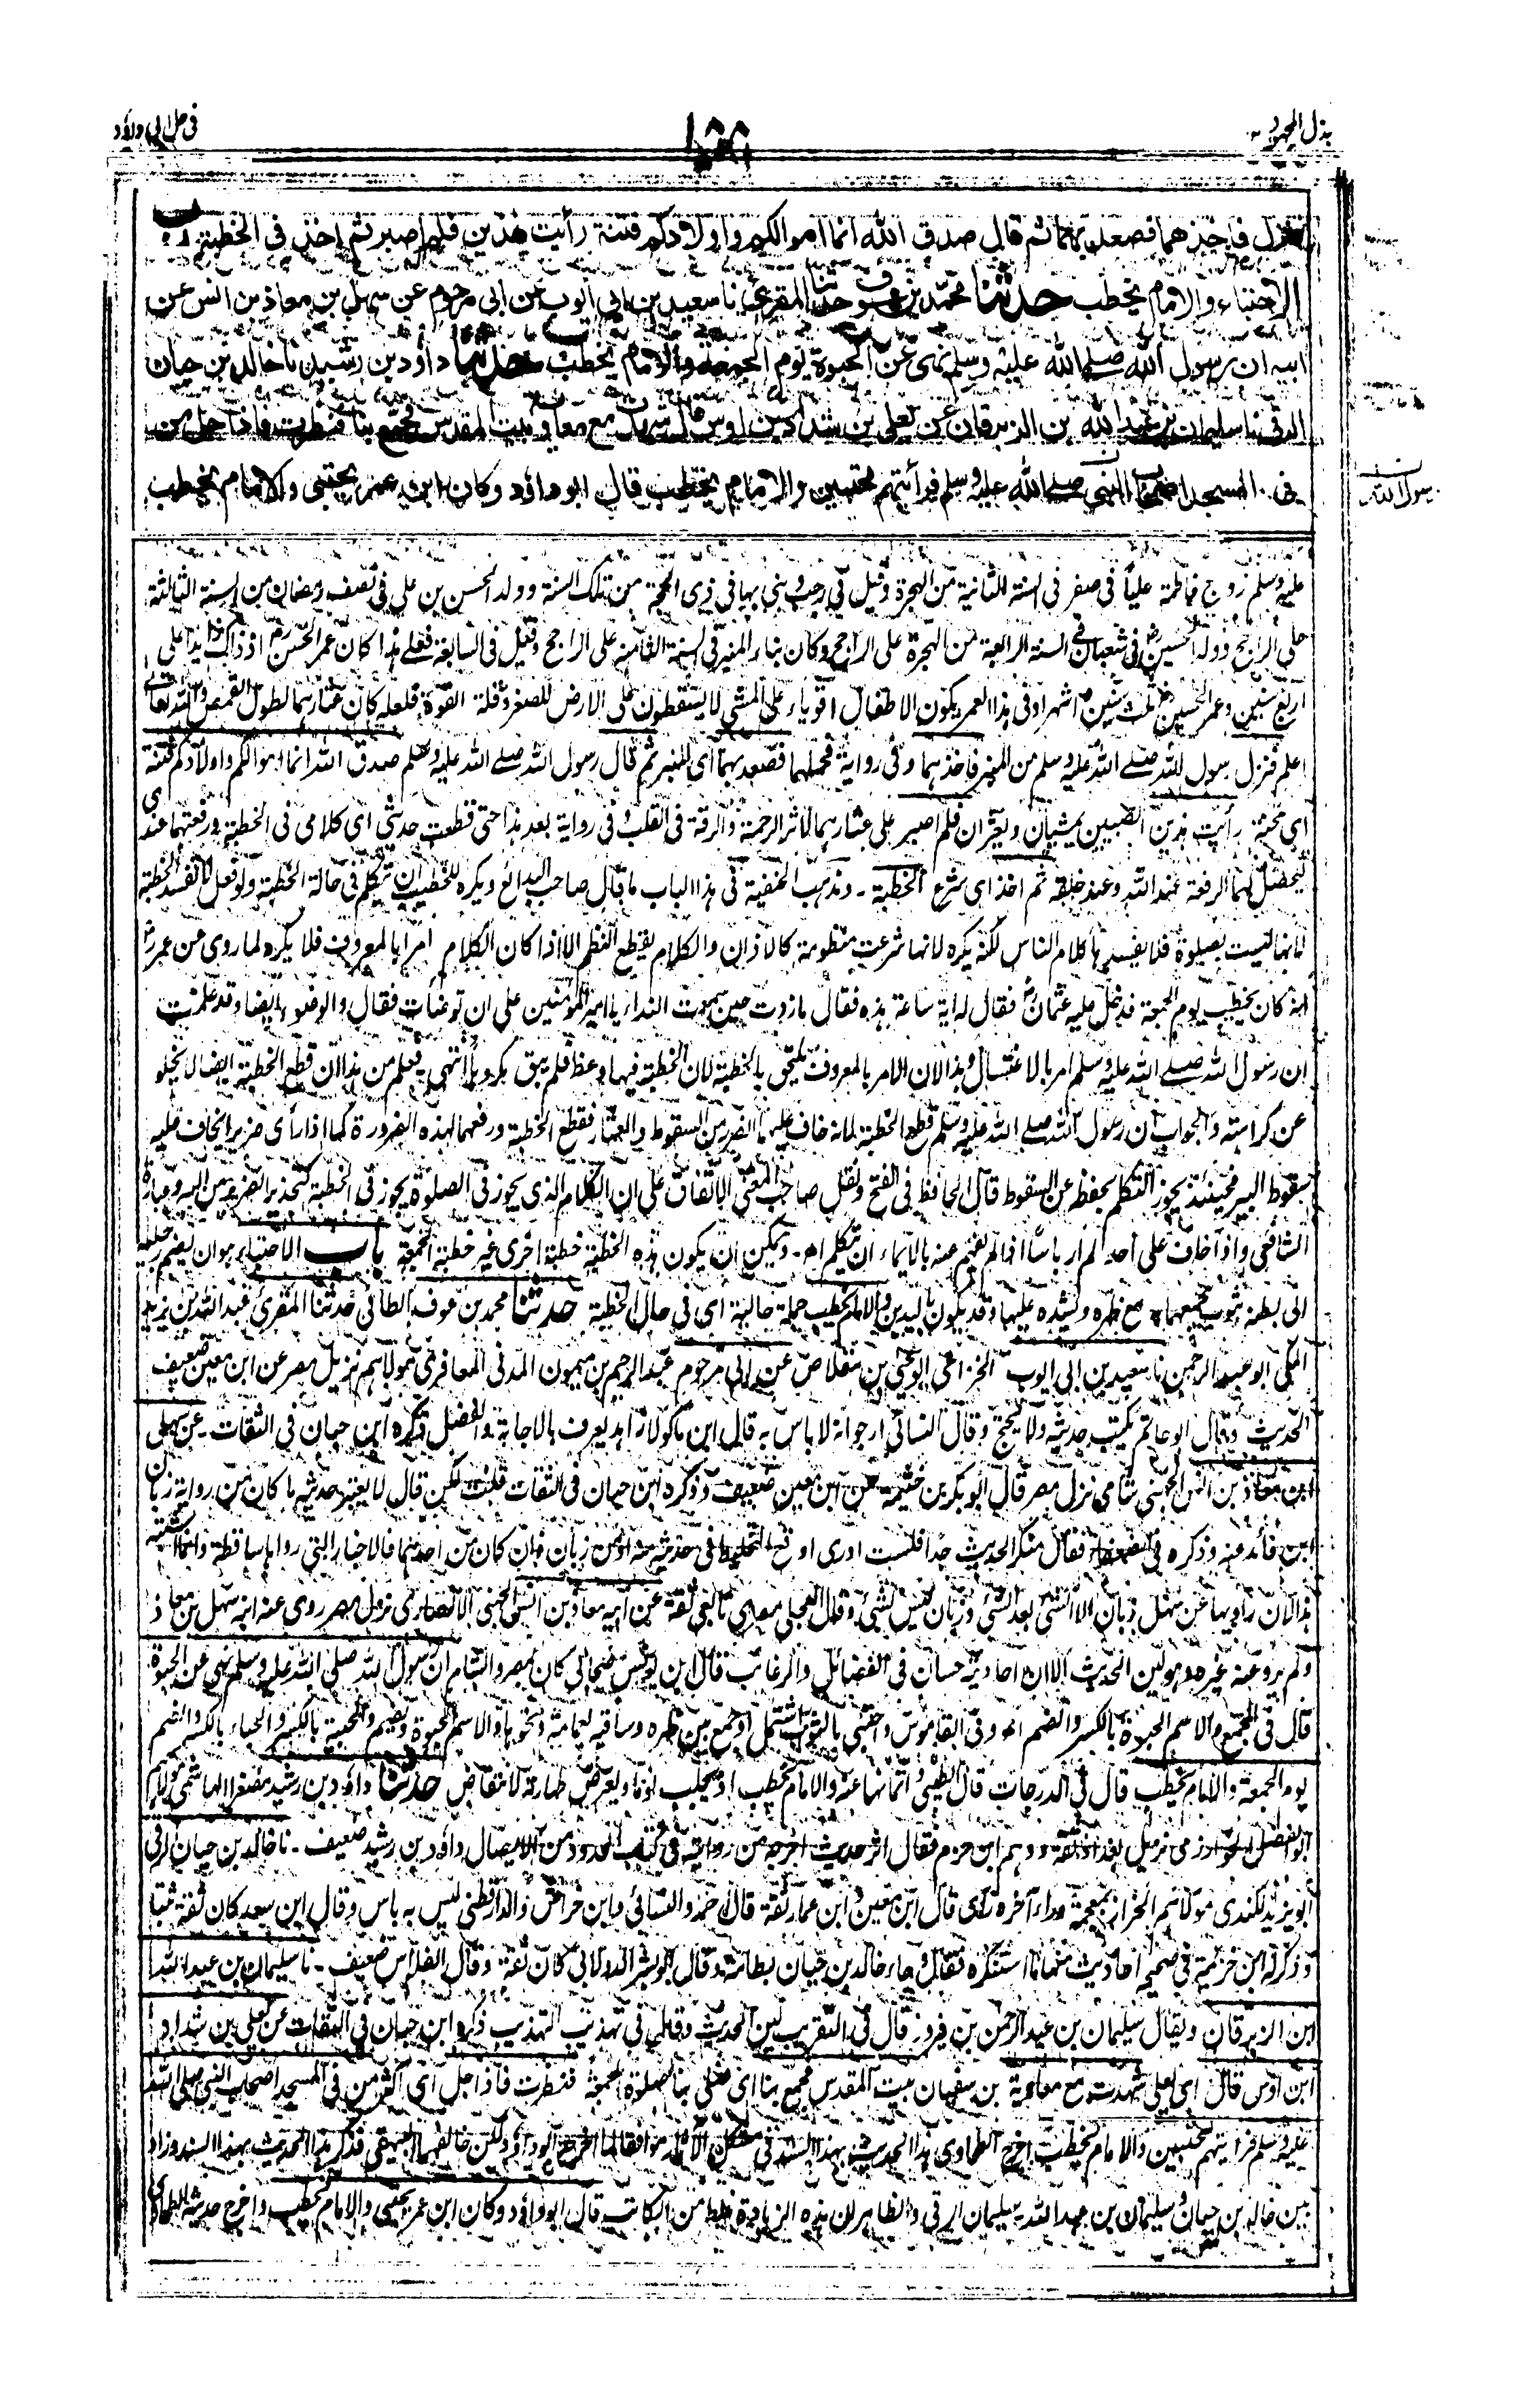 بذل المجهود
١٨٨
في حل ابي داؤد
فنزل فاخذهما فصعد بهما ثم قال صدق الله انما اموالكم واولادكم فتنة رأيت هذين فلم اصبر ثم اخذ في الخطبة باب
الاحتباء والامام يخطب حدثنا محمد بن عوف حدثنا المقرئ نا سعيد بن ابي ايوب عن ابي مرحوم عن سهل بن معاذ بن انس عن
ابيه ان رسول الله صلى الله عليه وسلم نهى عن الحبوة يوم الجمعة والامام يخطب حدثنا داؤد بن رشيد نا خالد بن حيان
الرقي نا سليمان بن عبد الله بن الزبرقان عن يعلى بن شداد بن اوس قال شهدت مع معاوية بيت المقدس فجمع بنا فنظرت فاذا جل من
في المسجد اصحاب النبي صلى الله عليه وسلم فرأيتهم محتبين والامام يخطب قال ابو داؤد وكان ابن عمر يحتبى والامام يخطب
رسول الله
عليه وسلم زوج فاطمة علياً في صفر في السنة الثانية من الهجرة وقيل في رجب وبنى بها في ذى الحجة من تلك السنة وولد الحسن بن علي في نصف رمضان من السنة الثالثة
على الراجح وولد الحسين في شعبان في السنة الرابعة من الهجرة على الراجح وكان بناء المنبر في السنة الثامنة على الراجح وقيل في السابعة فعلى هذا كان عمر الحسن اذ ذاك زائدا على
اربع سنين وعمر الحسين ثلث سنين و اشهرا وفي هذا العمر يكون الاطفال اقوياء على المشي لا يسقطون على الارض للصغر وقلة القوة فلعله كان عثارهما لطول القمص والله تعالى
اعلم فنزل رسول الله صلى الله عليه وسلم من المنبر فاخذهما وفي رواية فحملهما فصعد بهما اى المنبر ثم قال رسول الله صلى الله عليه وسلم صدق الله انما اموالكم واولادكم فتنة
اى محنة رأيت هذين الصبيين يمشيان ويعثران فلم اصبر على عثارهما لتأثر الرحمة والرقة في القلب وفي رواية بعد هذا حتى قطعت حديثي اى كلامي في الخطبة ورفعتهما عندى
ليحصل لهما الرفعة عند الله وعند خلقه ثم اخذ اى شرع الخطبة - ومذهب الحنفية في هذا الباب ما قال صاحب البدائع ويكره للخطيب ان يتكلم في حالة الخطبة ولو فعل لا تفسد الخطبة
لانها ليست بصلوة فلا يفسدها كلام الناس لكنه يكره لانها شرعت منظومة كالاذان والكلام يقطع النظم الا اذا كان الكلام امرا بالمعروف فلا يكره لما روى عن عمر
انه كان يخطب يوم الجمعة فدخل عليه عثمان فقال له اية ساعة هذه فقال ما زدت حين سمعت النداء يا امير المؤمنين على ان توضأت فقال والوضوء ايضا وقد علمت
ان رسول الله صلى الله عليه وسلم امر بالاغتسال وهذا لان الامر بالمعروف يلتحق بالخطبة لان الخطبة فيها وعظ فلم يبق مكروها انتهى فعلم من هذا ان قطع الخطبة ايضا لا يخلو
عن كراهته والجواب ان رسول الله صلى الله عليه وسلم قطع الخطبة لما انه خاف عليهما الضرر من السقوط والعثار فقطع الخطبة ورفعهما لهذه الضرورة كما اذا رأى ضريرا يخاف عليه
سقوط البير فحينئذ يجوز التكلم بحفظه عن السقوط قال الحافظ في الفتح ونقل صاحب المغني الاتفاق على ان الكلام الذى يجوز في الصلوة يجوز في الخطبة كتحذير الضرير من البير وعبارة
الشافعي واذا خاف على احد لم ار باسا اذا لم يفهم عنه بالايماء ان يتكلم اه - ويمكن ان يكون هذه الخطبة خطبة اخرى غير خطبة الجمعة باب الاحتباء هو ان يضم رجليه
الى بطنه بثوب يجمعهما مع ظهره ويشده عليهما وقد يكون باليدين والامام يخطب جملة حالية اى في حال الخطبة حدثنا محمد بن عوف الطائي حدثنا المقرئ عبد الله بن يزيد
المكي ابو عبد الرحمن نا سعيد بن ابي ايوب الخزاعي ابو يحيى بن مقلاص عن ابي مرحوم عبد الرحيم بن ميمون المدني المعافرى مولاهم نزيل مصر عن ابن معين ضعيف
الحديث وقال ابو حاتم يكتب حديثه ولا يحتج وقال النسائي ارجو انه لا باس به قال ابن ماكولا زاهد يعرف بالاجابة والفضل ذكره ابن حبان في الثقات - عن سهل
ابن معاذ بن انس الجهني شامي نزل مصر قال ابو بكر بن خثيمة عن ابن معين ضعيف وذكره ابن حبان في الثقات قلت لكن قال لا يعتبر حديثه ما كان من رواية زبان
ابن فائد عنه وذكره في الضعفاء فقال منكر الحديث جدا فلست ادرى اوقع التخليط في حديثه منه او من زبان فان كان من احدهما فالاخبار التي رواها ساقطة وانما اشتبه
هذا لان راويها عن سهل زبان الا الشئ بعد الشئ وزبان ليس بشئ وقال العجلي مصرى تابعي ثقة عن ابيه معاذ بن انس الجهني الانصارى نزل مصر روى عنه ابنه سهل بن معاذ
ولم يرو عنه غيره وهو لين الحديث الا ان احاديثه حسان في الفضائل والرغائب قال ابن يونس صحابي كان بمصر والشام ان رسول الله صلى الله عليه وسلم نهى عن الحبوة
قال في المجمع والاسم الحبوة بالكسر والضم اه وفي القاموس واحتبى بالثوب اشتمل او جمع بين ظهره وساقيه بعمامة ونحوها والاسم الحبوة ويضم والحبية بالكسر والحباء بالكسر والضم
يوم الجمعة والامام يخطب قال في الدرجات قال الطيبي وانما نها عنه والامام يخطب اذ يجلب نوما ويعرض طهارته لانتقاض حدثنا داؤد بن رشيد مصغرا الهاشمي مولاهم
ابو الفضل الخوارزمي نزيل بغداد ثقة ووهم ابن حزم فقال اثر حديث اخرجه من روايته في كتاب الحدود من الايصال داؤد بن رشيد ضعيف - نا خالد بن حيان الرقي
ابو يزيد الكندى مولاهم الخراز بمعجمة وراء آخره زاى قال ابن معين وابن عمار ثقة قال احمد والنسائي وابن خراش والدارقطني ليس به باس وقال ابن سعد كان ثقة ثبتا
وذكر له ابن خزيمة في صحيحه احاديث منها ما استنكره فقال وجاء خالد بن حيان بطامة وقال ابو بشر الدولابي كان ثقة وقال الفلاس ضعيف - نا سليمان بن عبد الله
ابن الزبرقان ويقال سليمان بن عبد الرحمن بن فيروز قال في التقريب لين الحديث وقال في تهذيب التهذيب ذكره ابن حبان في الثقات عن يعلى بن شداد
ابن اوس قال اى يعلى شهدت مع معاوية بن سفيان بيت المقدس فجمع بنا اى صلى بنا صلوة الجمعة فنظرت فاذا جل اى اكثر من في المسجد اصحاب النبي صلى الله
عليه وسلم فرايتهم محتبين والامام يخطب اخرج الطحاوى هذا الحديث بهذا السند في مشكل الآثار موافقا لما اخرجه ابو داؤد ولكن خالفهما البيهقي فذكر هذا الحديث بهذا السند وزاد
بين خالد بن حيان وسليمان بن عبد الله سليمان الرقي والظاهر ان هذه الزيادة غلط من الكاتب قال ابو داؤد وكان ابن عمر يحتبى والامام يخطب واخرج حديثه الطحاوى